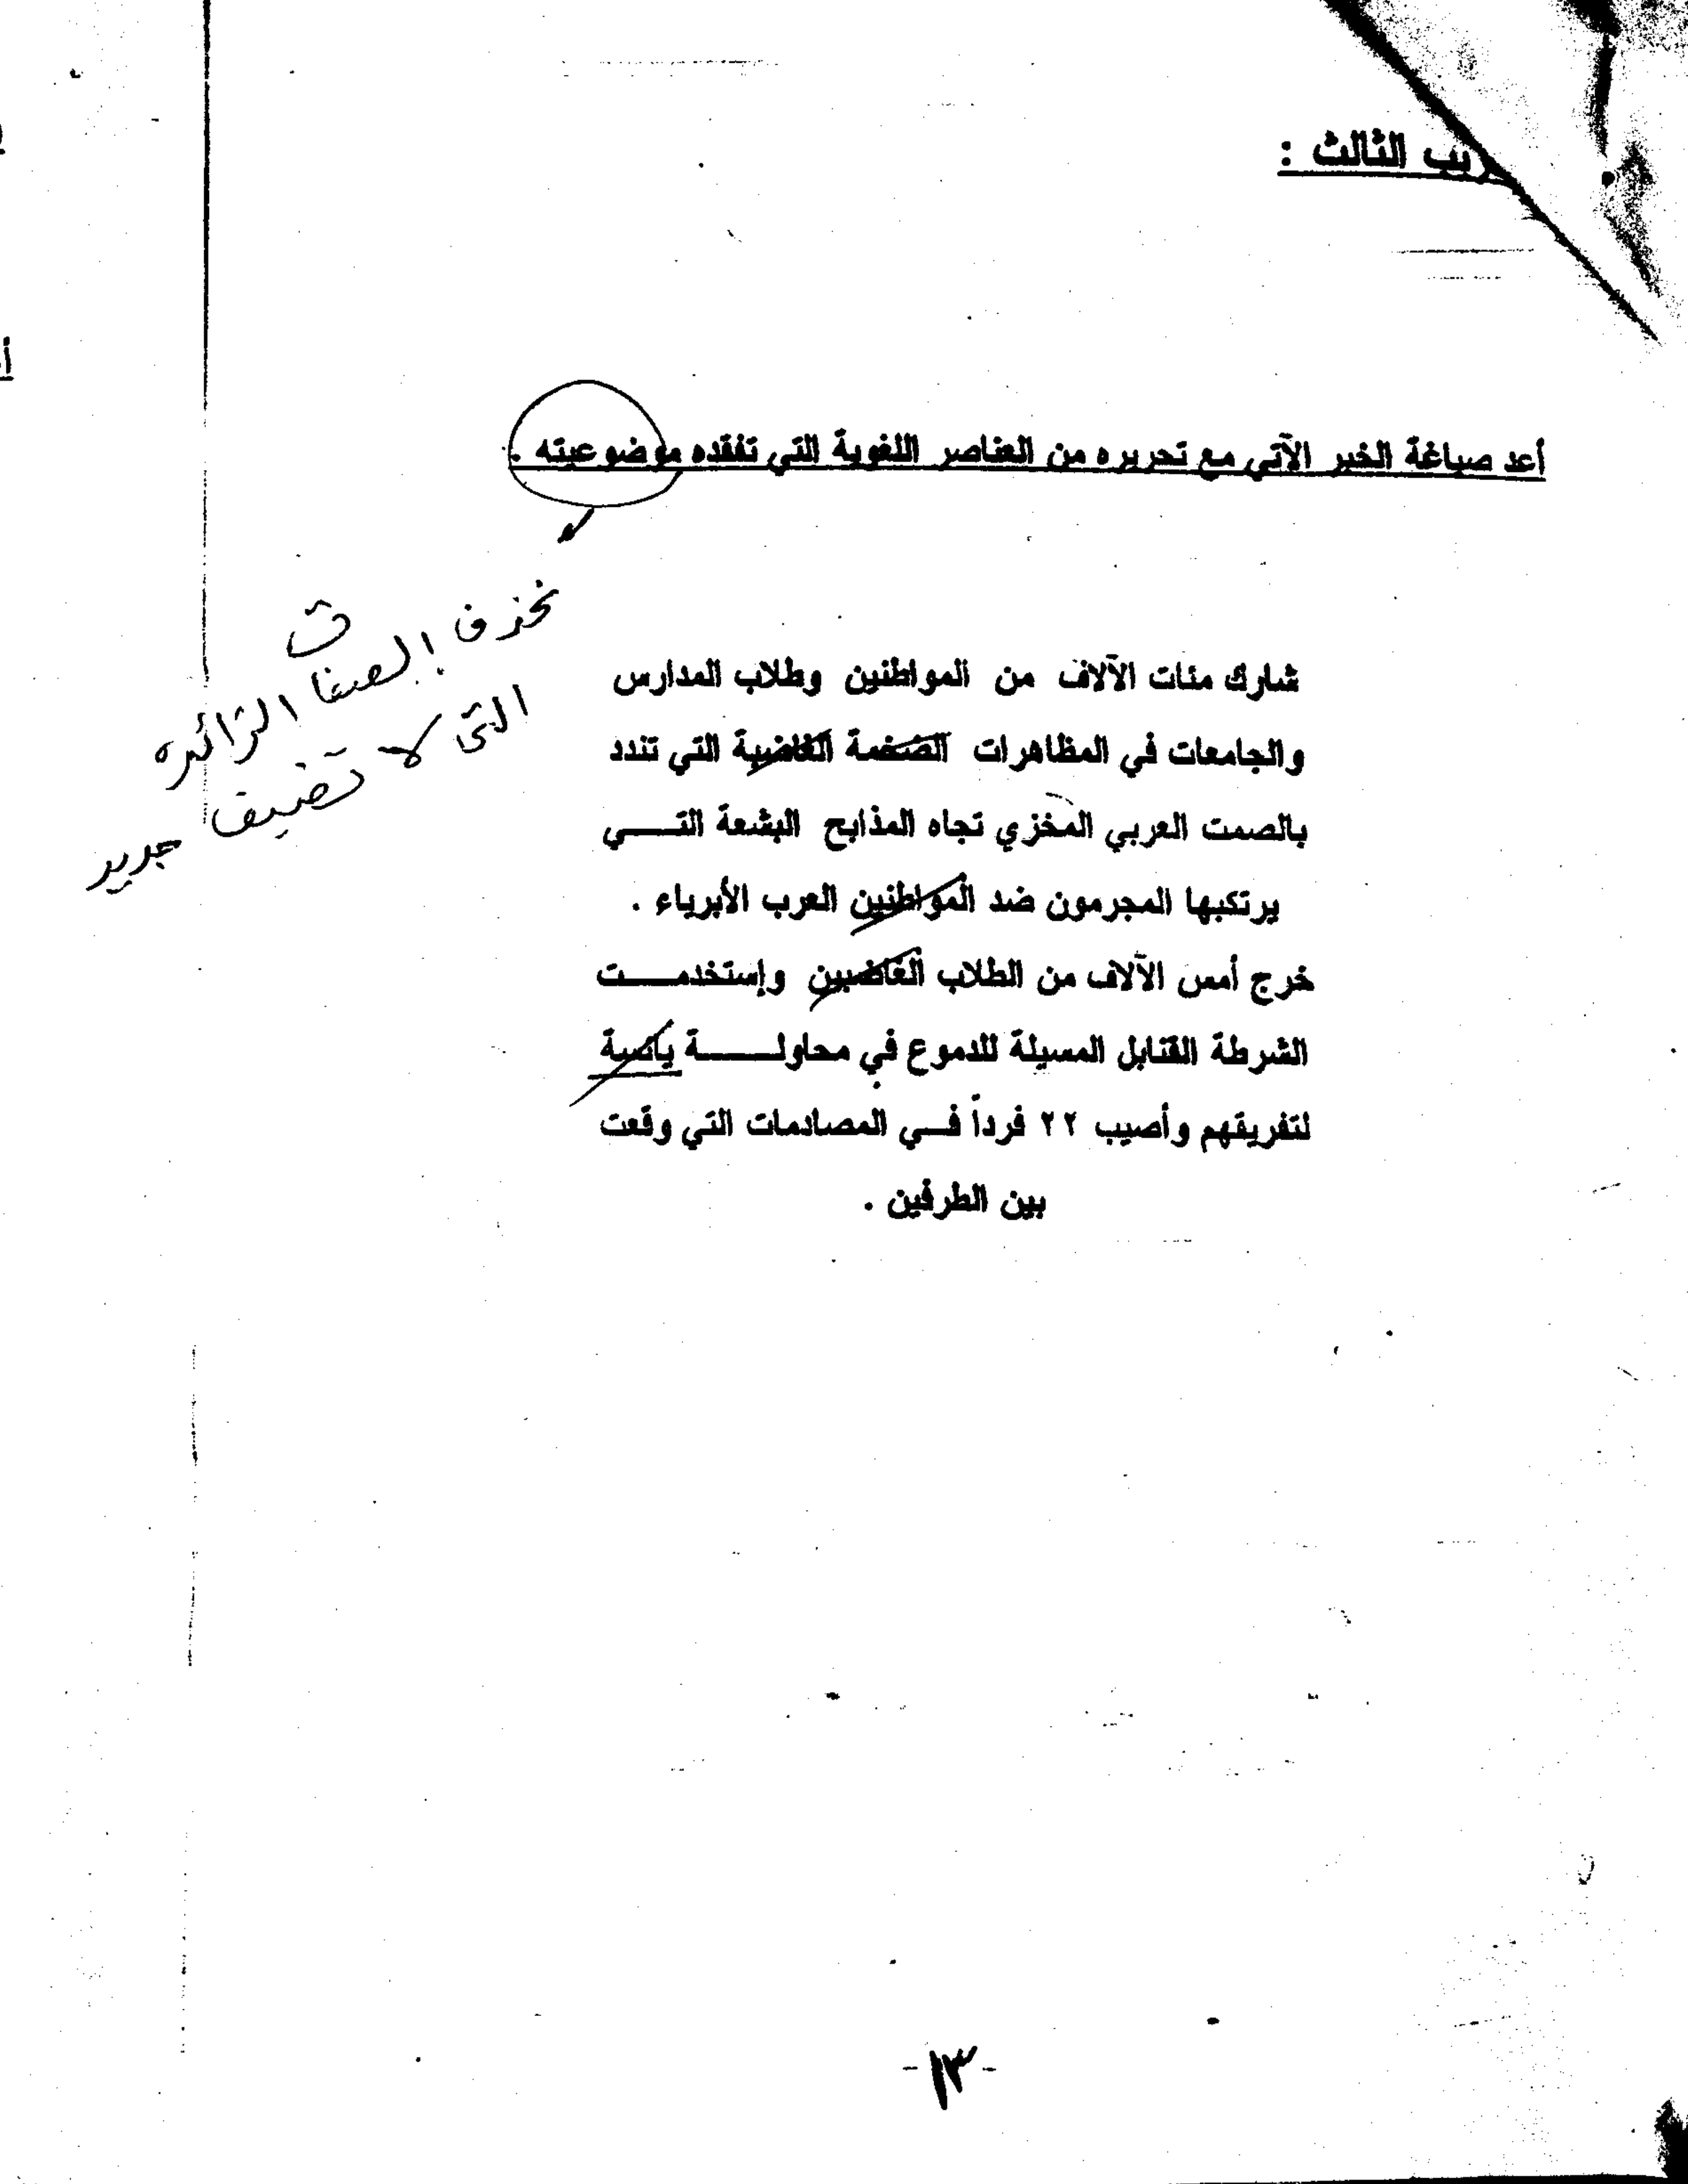 ريب الثالث :
أعد صياغة الخبر الآتي مع تحريره من العناصر اللغوية التي تفقده موضوعيته .
نحذف الصفات الزائده
التى لا تضيف جديد
شارك مئات الآلاف من المواطنين وطلاب المدارس
والجامعات في المظاهرات الضخمة الغاضبة التي تندد
بالصمت العربي المخزي تجاه المذابح البشعة التـــي
يرتكبها المجرمون ضد المواطنين العرب الأبرياء .
خرج أمس الآلاف من الطلاب الغاضبين وإستخدمــــت
الشرطة القنابل المسيلة للدموع في محاولـــــة يائسة
لتفريقهم وأصيب ٢٢ فرداً فـــي المصادمات التي وقعت
بين الطرفين .
-١٣-
أ